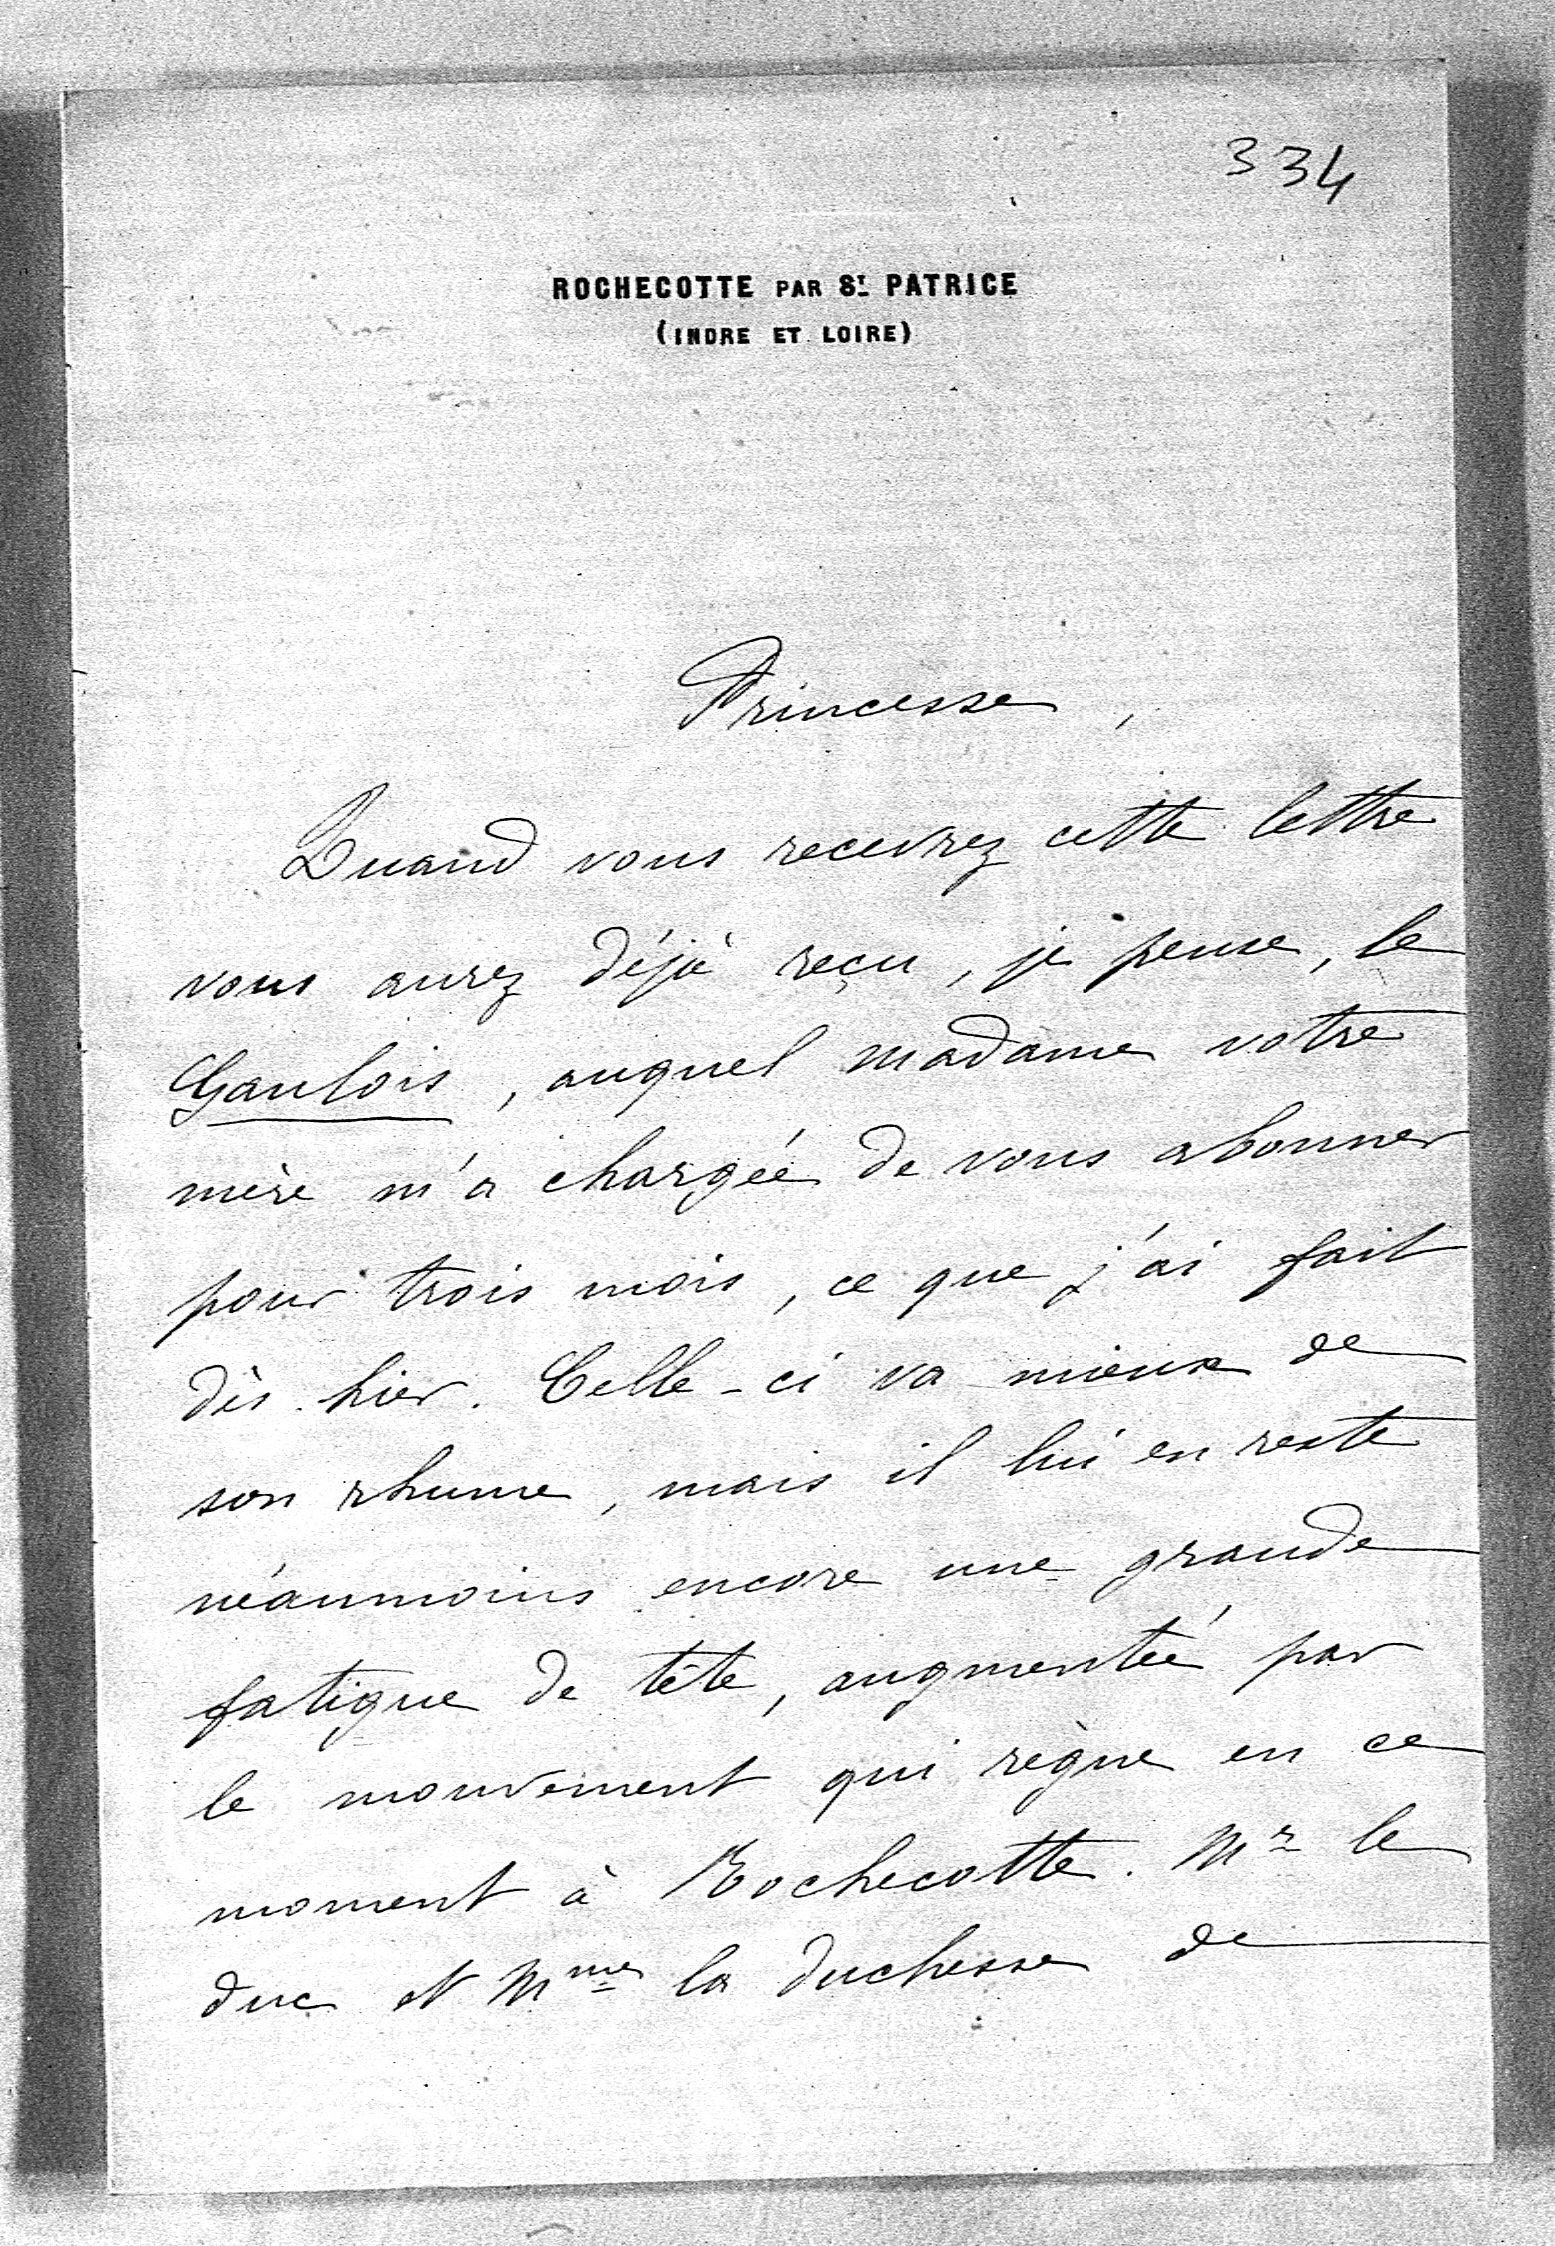 334
ROCHECOTTE PAR St. PATRICE
(INDRE ET LOIRE)
Princesse,
Quand vous recevrez cette lettre
vous aurez déjà reçu, je pense, le
Gaulois, auquel madame votre
mère m'a chargée de vous abonner
pour trois mois, ce que j'ai fait
dès hier. Celle-ci va mieux de
son rhume, mais il lui en reste
néanmoins encore une grande
fatigue de tête, augmentée par
le mouvement qui règne en ce
moment à Rochecotte. Mr le
duc et Mme la duchesse de